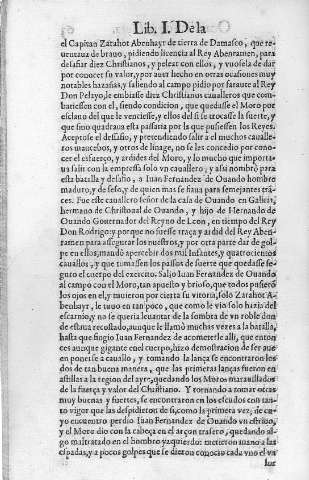 Lib. I. De la
el Capitan Zarahot Abenhayr de tierra de Damasco, que re
uentaua de brauo, pidiendo licencia al Rey Abenramen, para
desafiar diez Christianos, y pelear con ellos, y vuosela de dar
por conocer su valor, y por auer hecho en otras ocasiones muy
notables hazañas, y saliendo al campo pidio por faraute al Rey
Don Pelayo, le embiasse diez Christianos caualleros que com
batiessen con el, siendo condicion, que quedasse el Moro por
esclauo del que le venciesse, y ellos del si se trocasse la suerte, y
que sino quadraua esta passaria por la que pusiessen los Reyes.
Aceptose el desafio, y pretendiendo salir a el muchos cauallle-
ros mancebos, y otros de linage, no se les concedio por cono-
cer el esfuerço, y ardides del Moro, y lo mucho que importa-
ua salir con la empressa solo vn cauallero; y assi nombrò para
esta batalla y desafio, a Iuan Fernandez de Ouando hombre
maduro, y de seso, y de quien mas se fiaua para semejantes trã-
ces. Fue este cauallero señor de la casa de Ouando en Galicia,
hermano de Christoual de Ouando, y hijo de Hernando de
Ouando Gouernador del Reyno de Leon, en tiempo del Rey
Don Rodrigo: y porque no fuesse traça y ardid del Rey Aben-
ramen para assegurar los nuestros, y por otra parte dar de gol-
pe en ellos, mandò apercebir dos mil Infantes, y quatrocientos
cauallos, y que tomassen los passos de suerte que quedasse se-
guro el cuerpo del exercito. Salio Iuan Fernandez de Ouando
al campo con el Moro, tan apuesto y brioso, que todos pusierõ
los ojos en el, y tuuieron por cierta su vitoria, solo Zarahot A-
benhayr, le tuuo en tan poco, que como le vio solo hizia del
escarnio, y no se queria leuantar de la sombra de vn roble don
de estaua recostado, aunque le llamò muchas vezes a la batalla,
hasta que fingio Iuan Fernandez de acometerle alli, que enton
ces aunque gigante en el cuerpo, hizo demostracion de ser aue
en ponerse a cauallo, y tomando la lança se encontraron los
dos de tan buena manera, que las primeras lanças fueron en
astillas a la region del ayre, quedando los Moros marauillados
de la fuerça y valor del Christiano. Y tornando a tomar otras
muy buenas y fuertes, se encontraron en los escudos con tan-
to vigor que las despidieron de si, como la primera vez, de cu-
yo encuentro perdio Iuan Fernandez de Ouando vn estriuo,
y el Moro dio con la cabeça en el arçon trasero, quedando al-
go maltratado en el hombro yzquierdo: metieron mano a las
espadas, y a pocos golpes que se dieron conocio cada vno el va
lor